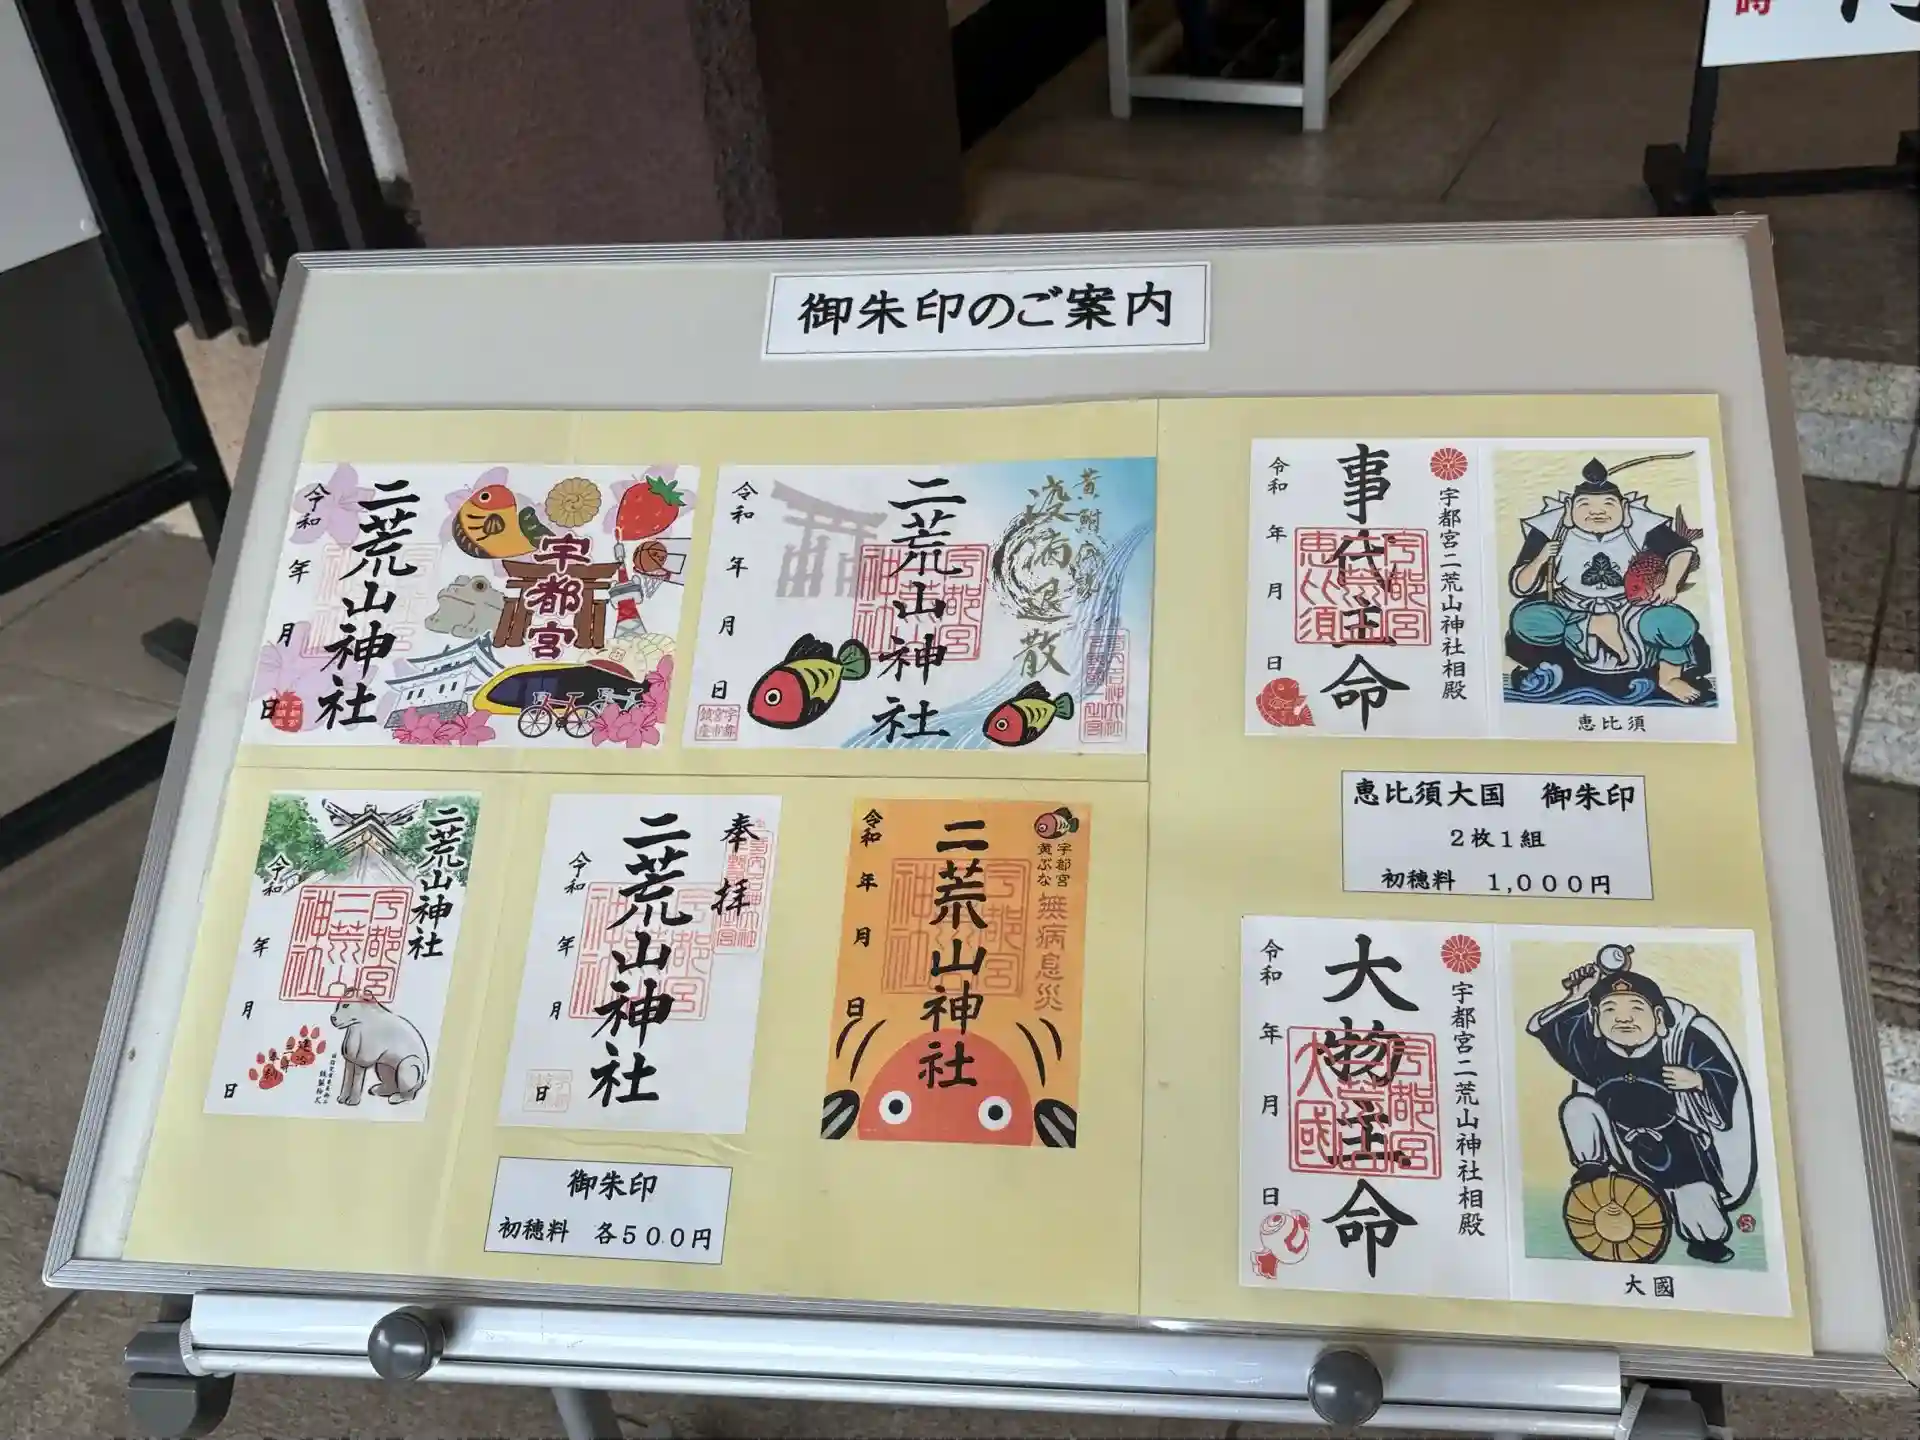 御朱印のご案内
二荒山神社
令和
年
月
日
宇都宮
二荒山神社
令和
年
月
日
疫病退散
事代主命
令和
年
月
日
宇都宮二荒山神社相殿
恵比須
宇都宮
恵比須
恵比須大国　御朱印
２枚１組
初穂料　１,０００円
二荒山神社
令和
年
月
日
宇都宮
二荒山
神社
奉拝
二荒山神社
令和
年
月
日
宇都宮
黄ぶな
無病息災
二荒山神社
令和
年
月
日
御朱印
初穂料　各５００円
大物主命
令和
年
月
日
宇都宮二荒山神社相殿
宇都宮
大國
大國
時